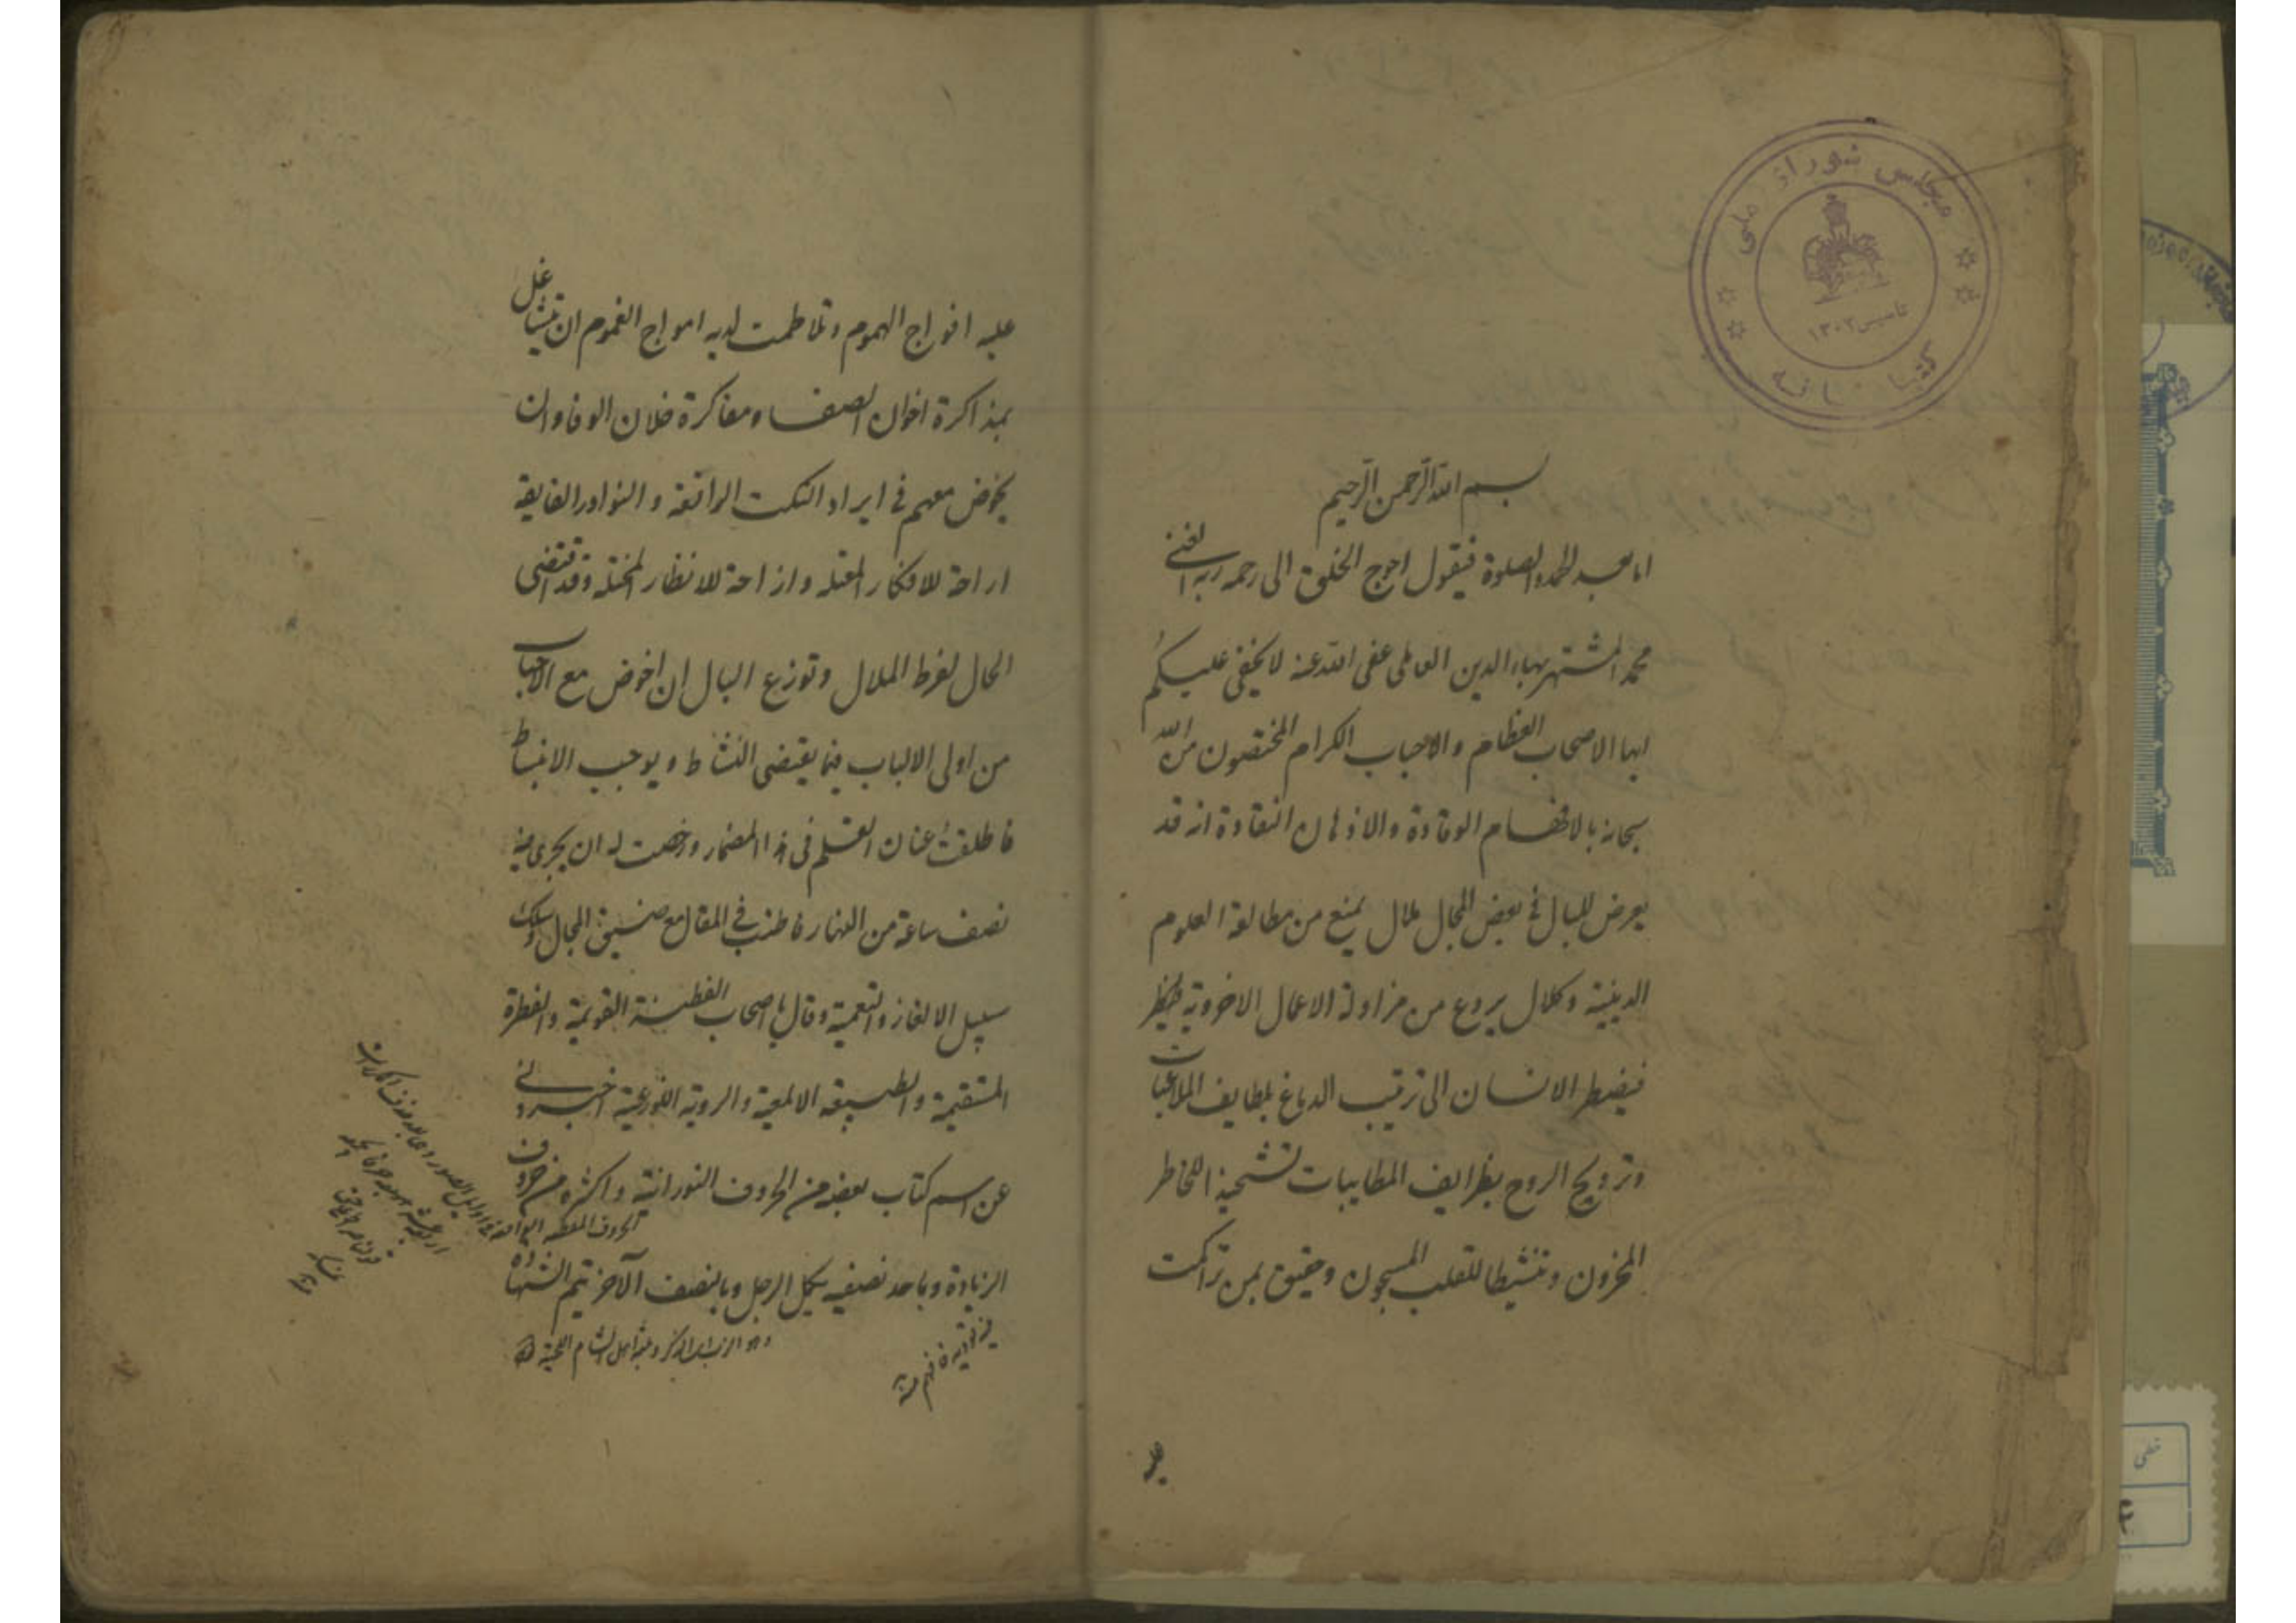 مجلس شورای ملی
تاسیس ۱۳۰۲
کتابخانه
بسم الله الرحمن الرحيم
اما بعد الحمد والصلوة فيقول احوج الخلق الى رحمة ربه الغنى
محمد المشتهر ببهاء الدين العاملى عفى الله عنه لا يخفى عليكم
ايها الاصحاب العظام والاحباب الكرام المختصون من الله
سبحانه بالافهام الوقادة والاذهان النقادة انه قد
يعرض للبال فى بعض المجال ملال يمنع من مطالعة العلوم
الدينية وكلال يردع من مزاولة الاعمال الاخروية
فيضطر الانسان الى ترتيب الدماغ بلطايف الملاعبات
وترويح الروح بظرايف المطايبات تشحيذا للخاطر
المخزون وتنشيطا للقلب المسجون وحقيق بمن تراكمت
عليه
عليه افواج الهموم وتلاطمت لديه امواج الغموم ان يتشاغل
بمذاكرة اخوان الصفا ومفاكرة خلان الوفا وان
يخوض معهم فى ايراد النكت الرائقة والنوادر الفايقة
اراحة للافكار المعتله وازاحة للانظار المختله وقد اقتضى
الحال لفرط الملال وتوزع البال ان اخوض مع الاحباب
من اولى الالباب فيما يقتضى النشاط ويوجب الانبساط
فاطلقت عنان القلم فى هذا المضمار ورخصت له ان يجرى فيه
نصف ساعة من النهار فاطنب فى المقال مع ضيق المجال وسلك
سبيل الالغاز والتعمية وقال يا اصحاب الفطنة القويمة والفطرة
المستقيمة والطبيعة الالمعية والروية اللوذعية اخبرونى
عن اسم كتاب بعضه من الحروف النورانية واكثره من حروف
الحروف المقطعه الواقعة فى اوايل السور
الزيادة وباحد نصفيه يكمل الرجل وبالنصف الآخر يتم الشهادة